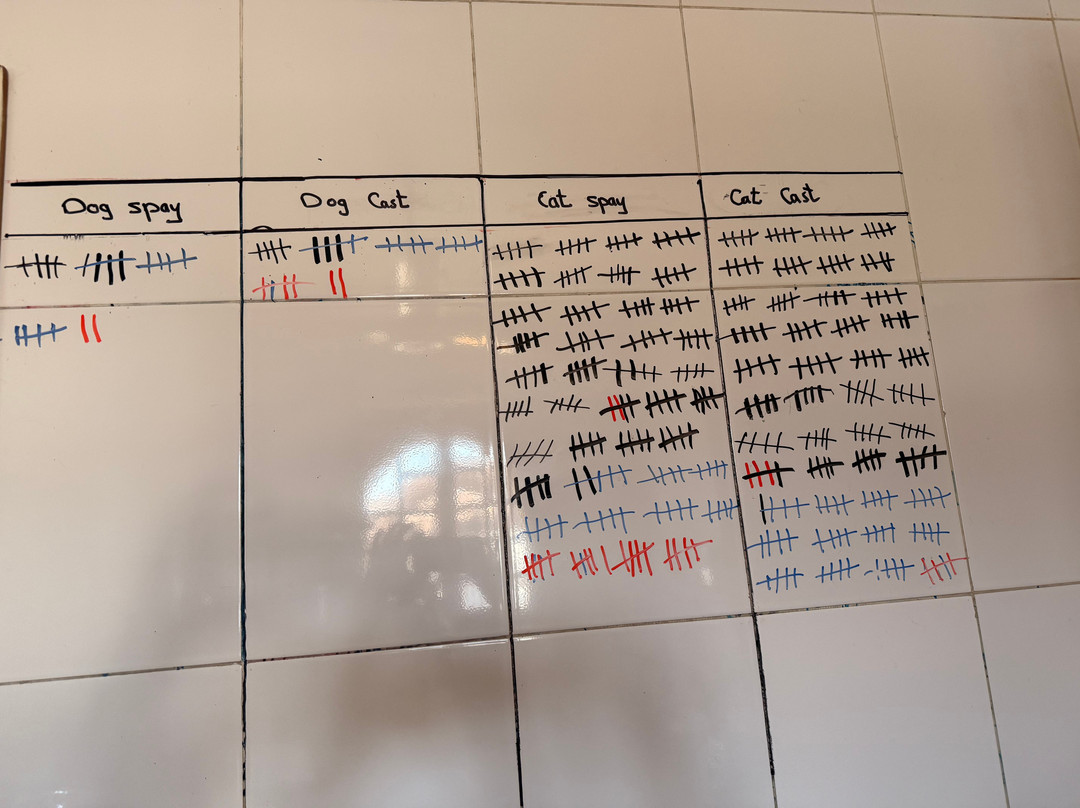 Dog spay Dog Cast Cat spay Cat Cast